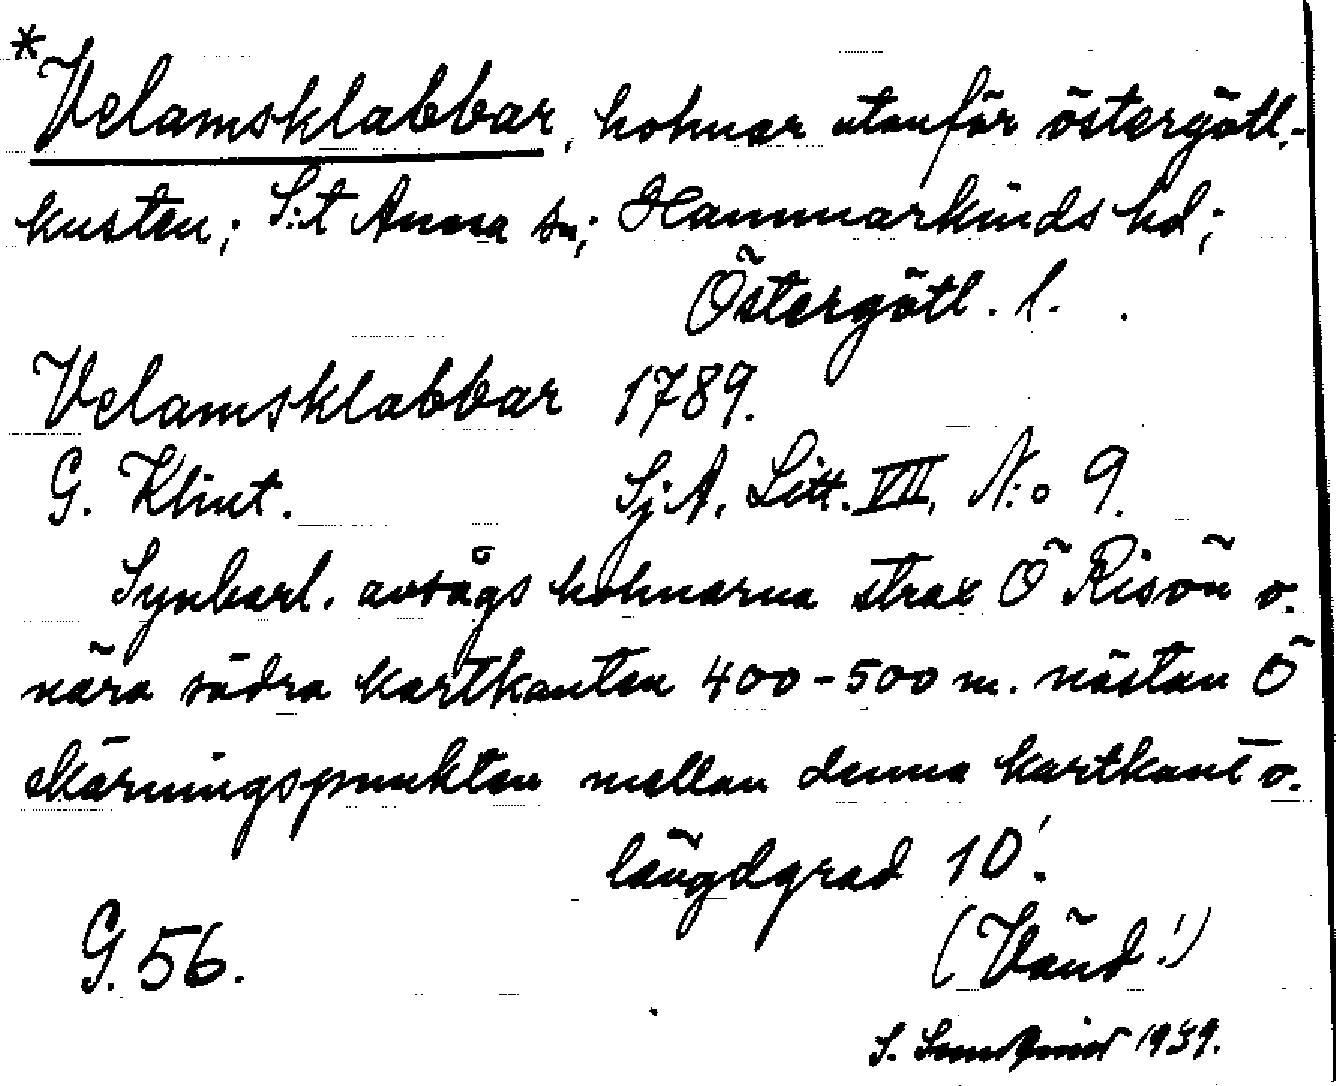 *Velamsklabbar, holmar utanför östergötl.-
kusten; S:t Anna sn; Hammarkinds hd;
Östergötl. l.
Velamsklabbar 1789.
G. Klint. Sj.A. Litt. VII, N:o 9.
Synbarl. avsågs holmarna strax Ö Risön o.
nära södra kartkanten 400-500 m. nästan Ö
skärningspunkten mellan denna kartkant o.
längdgrad 10'.
G. 56. (Vänd!)
S. 1939.